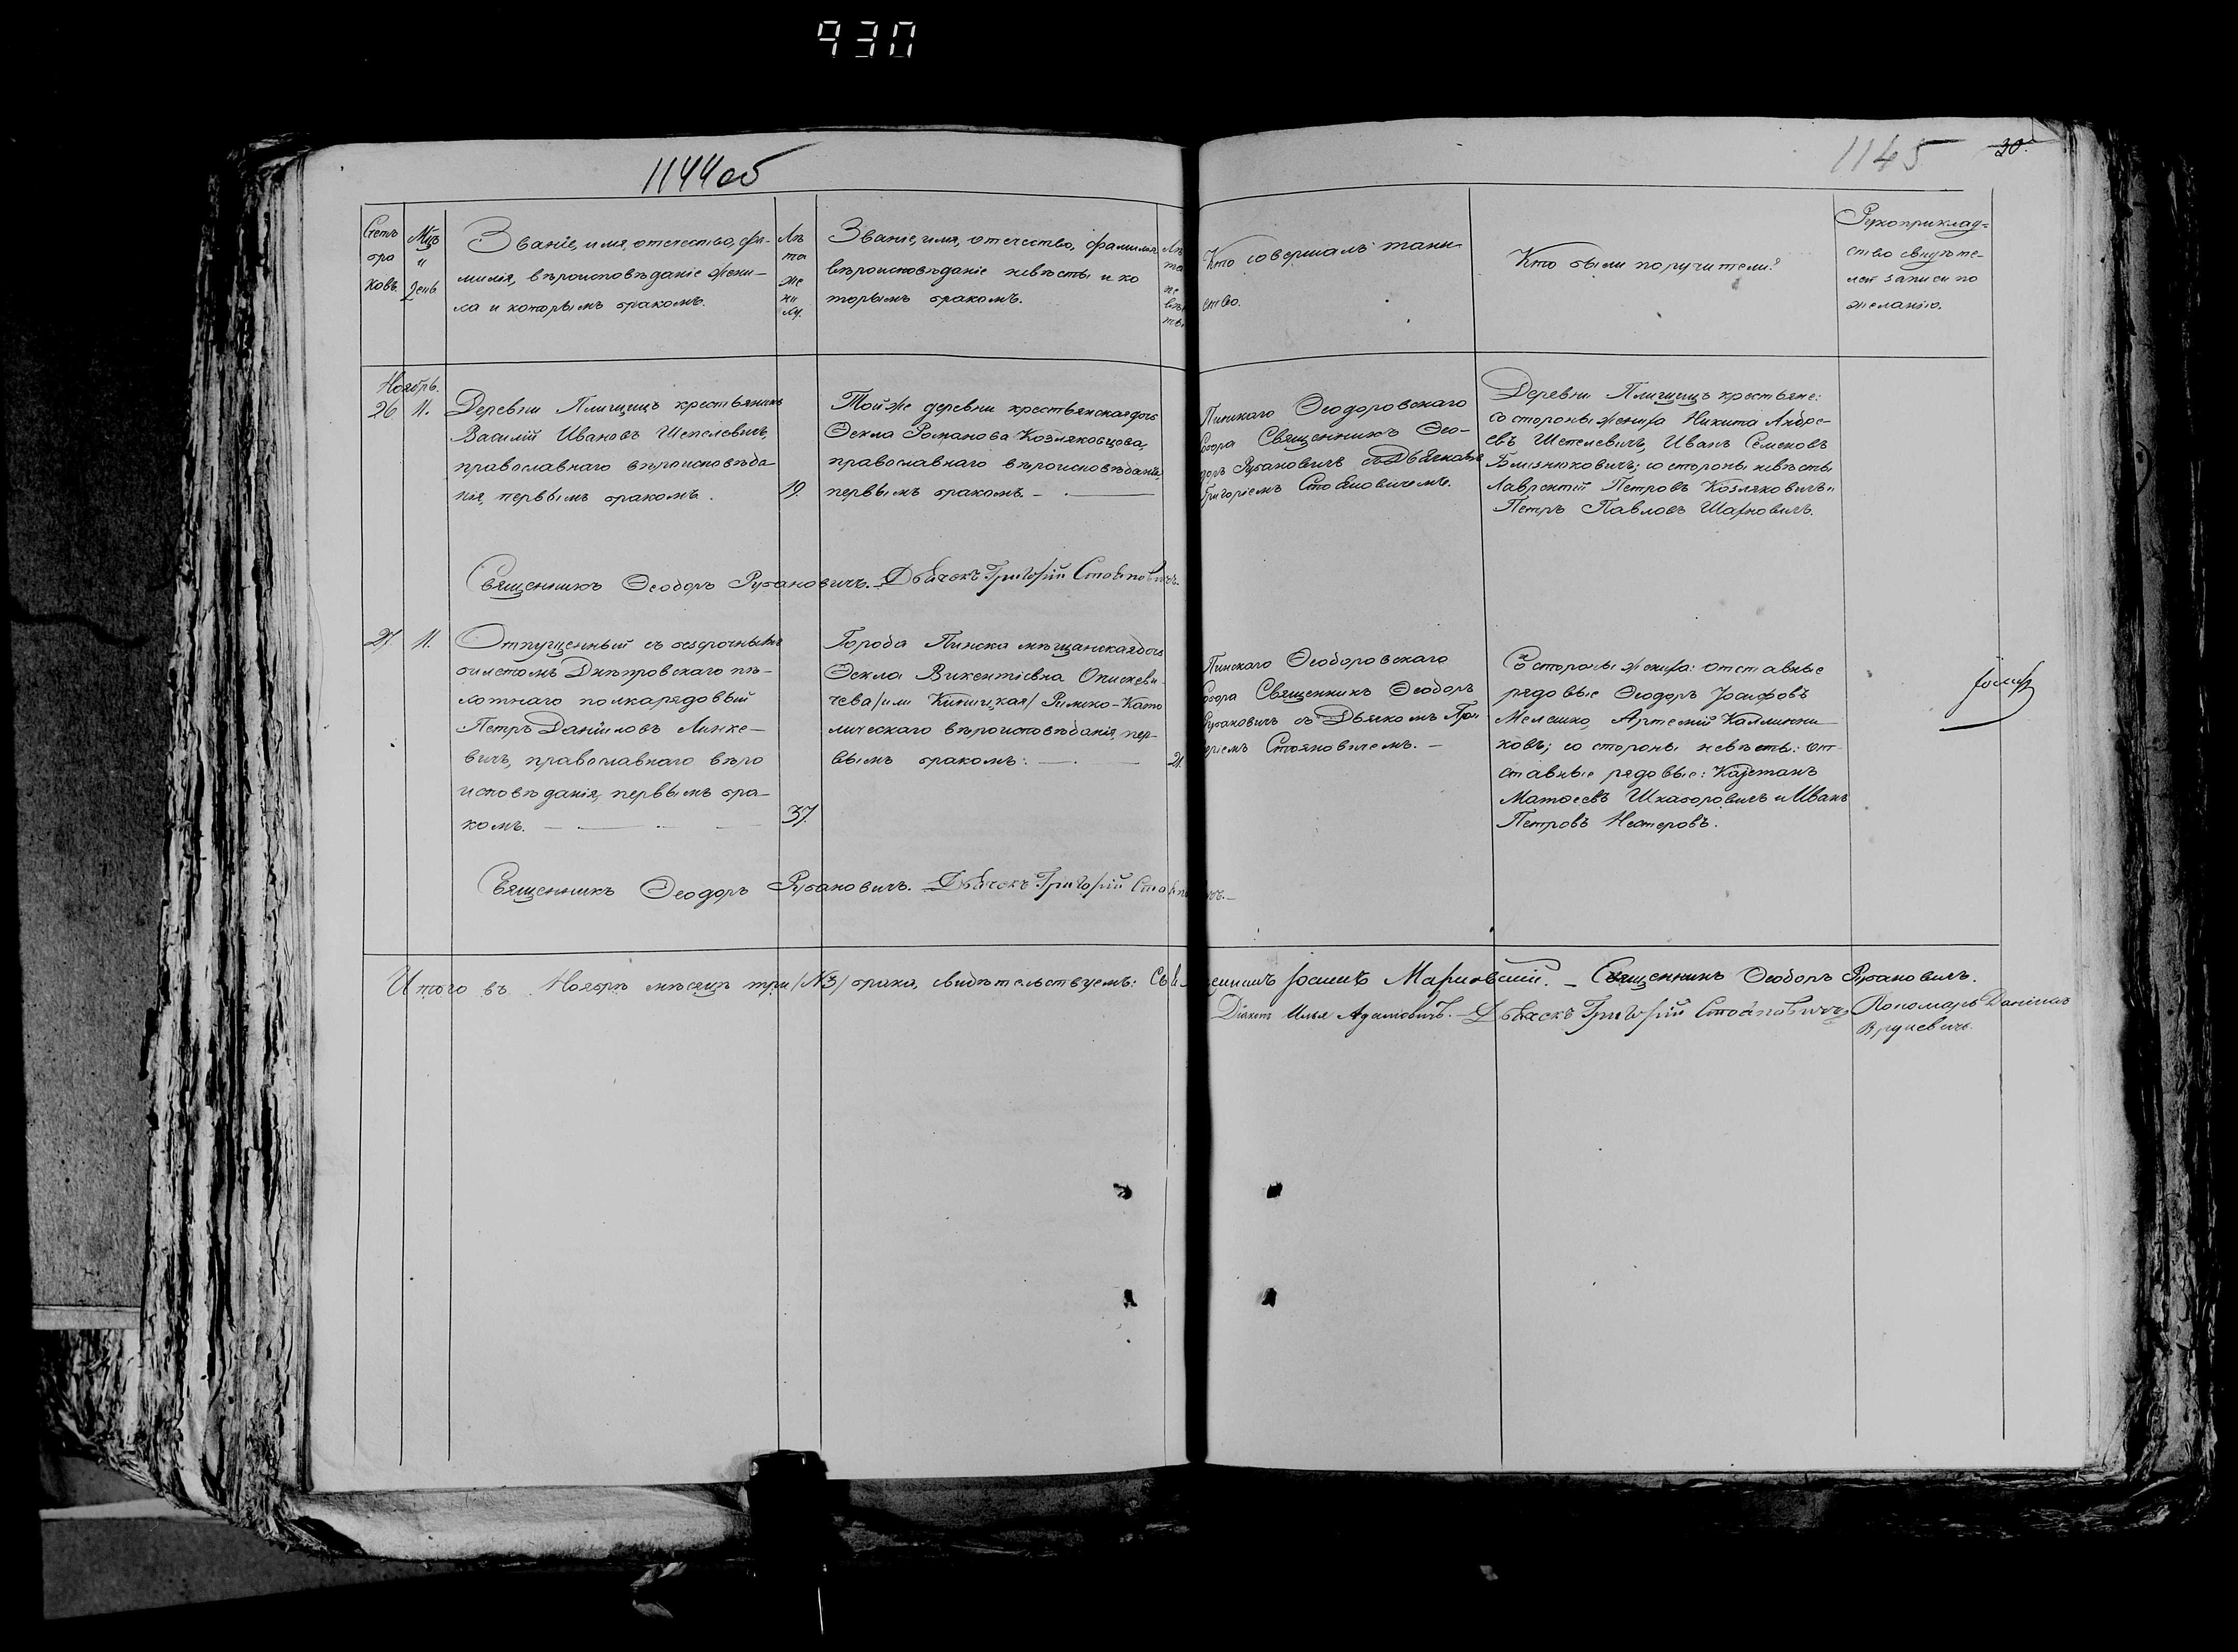 930
1144об
1145
30.
Счетъ
бра
ковъ.
Мцъ
и
день
Званіе, имя, отечество, фа-
милія, вѣроисповѣданіе жени-
ха и которымъ бракомъ.
Лѣ
та
же
ни
ха.
Званіе, имя, отечество, фамилія
вѣроисповѣданіе невѣсты и ко
торымъ бракомъ.
Лѣ
та
не
вѣс
ты
Кто совершалъ таин
ство.
Кто были поручители?
Рукоприклад-
ство свидѣте-
лей записи по
желанію.
Ноябрь.
26 11.
Деревни Плищицъ крестьянинъ
Василій Ивановъ Шепелевичъ,
православнаго вѣроисповѣда
нія, первымъ бракомъ.
19.
Той же деревни крестьянская дочь
Ѳекла Романова Козляковцова,
православнаго вѣроисповѣданія,
первымъ бракомъ. —
Пинскаго Ѳеодоровскаго
Собора Священникъ Ѳео-
доръ Рубановичъ съ Дьячкомъ
Григоріемъ Стояновичемъ.
Деревни Плищицъ крестьяне:
со стороны жениха Никита Андре-
евъ Шепелевичъ, Иванъ Семеновъ
Близнюковичъ; со стороны невѣсты
Лаврентій Петровъ Козляковичъ и
Петръ Павловъ Шарковичъ.
Священникъ Ѳеодоръ Рубановичъ. Дьячекъ Григорій Стояновичъ.
27. 11.
Отпущенный съ безсрочнымъ
билетомъ Днѣпровскаго пѣ-
хотнаго полка рядовый
Петръ Даніиловъ Линке-
вичъ, православнаго вѣро
исповѣданія, первымъ бра-
комъ. —
37.
Города Пинска мѣщанская дочь
Ѳекла Викентіевна
чева /или Киницкая/ Римско-Като
лическаго вѣроисповѣданія, пер-
вымъ бракомъ: —
21.
Пинскаго Ѳеодоровскаго
Собора Священникъ Ѳеодоръ
Рубановичъ съ Дьячкомъ Гри-
горіемъ Стояновичемъ. —
Со стороны жениха: отставные
рядовые Ѳеодоръ Іосифовъ
Мелешко, Артемій Каллинни-
ковъ; со стороны невѣсты: от-
ставные рядовые: Каэтанъ
Матѳеевъ Шкаборовичъ и Иванъ
Петровъ Нестеровъ.
Священникъ Ѳеодоръ Рубановичъ. Дьячекъ Григорій Стояновичъ. —
Итого въ Ноябрѣ мѣсяцѣ три /№3/ брака, свидѣтельствуемъ: Священникъ Іоаннъ Марковскій. — Священникъ Ѳеодоръ Рубановичъ.
Діаконъ Илья Адамовичъ. — Дьячекъ Григорій Стояновичъ Пономарь Даніилъ
Вруцевичъ.